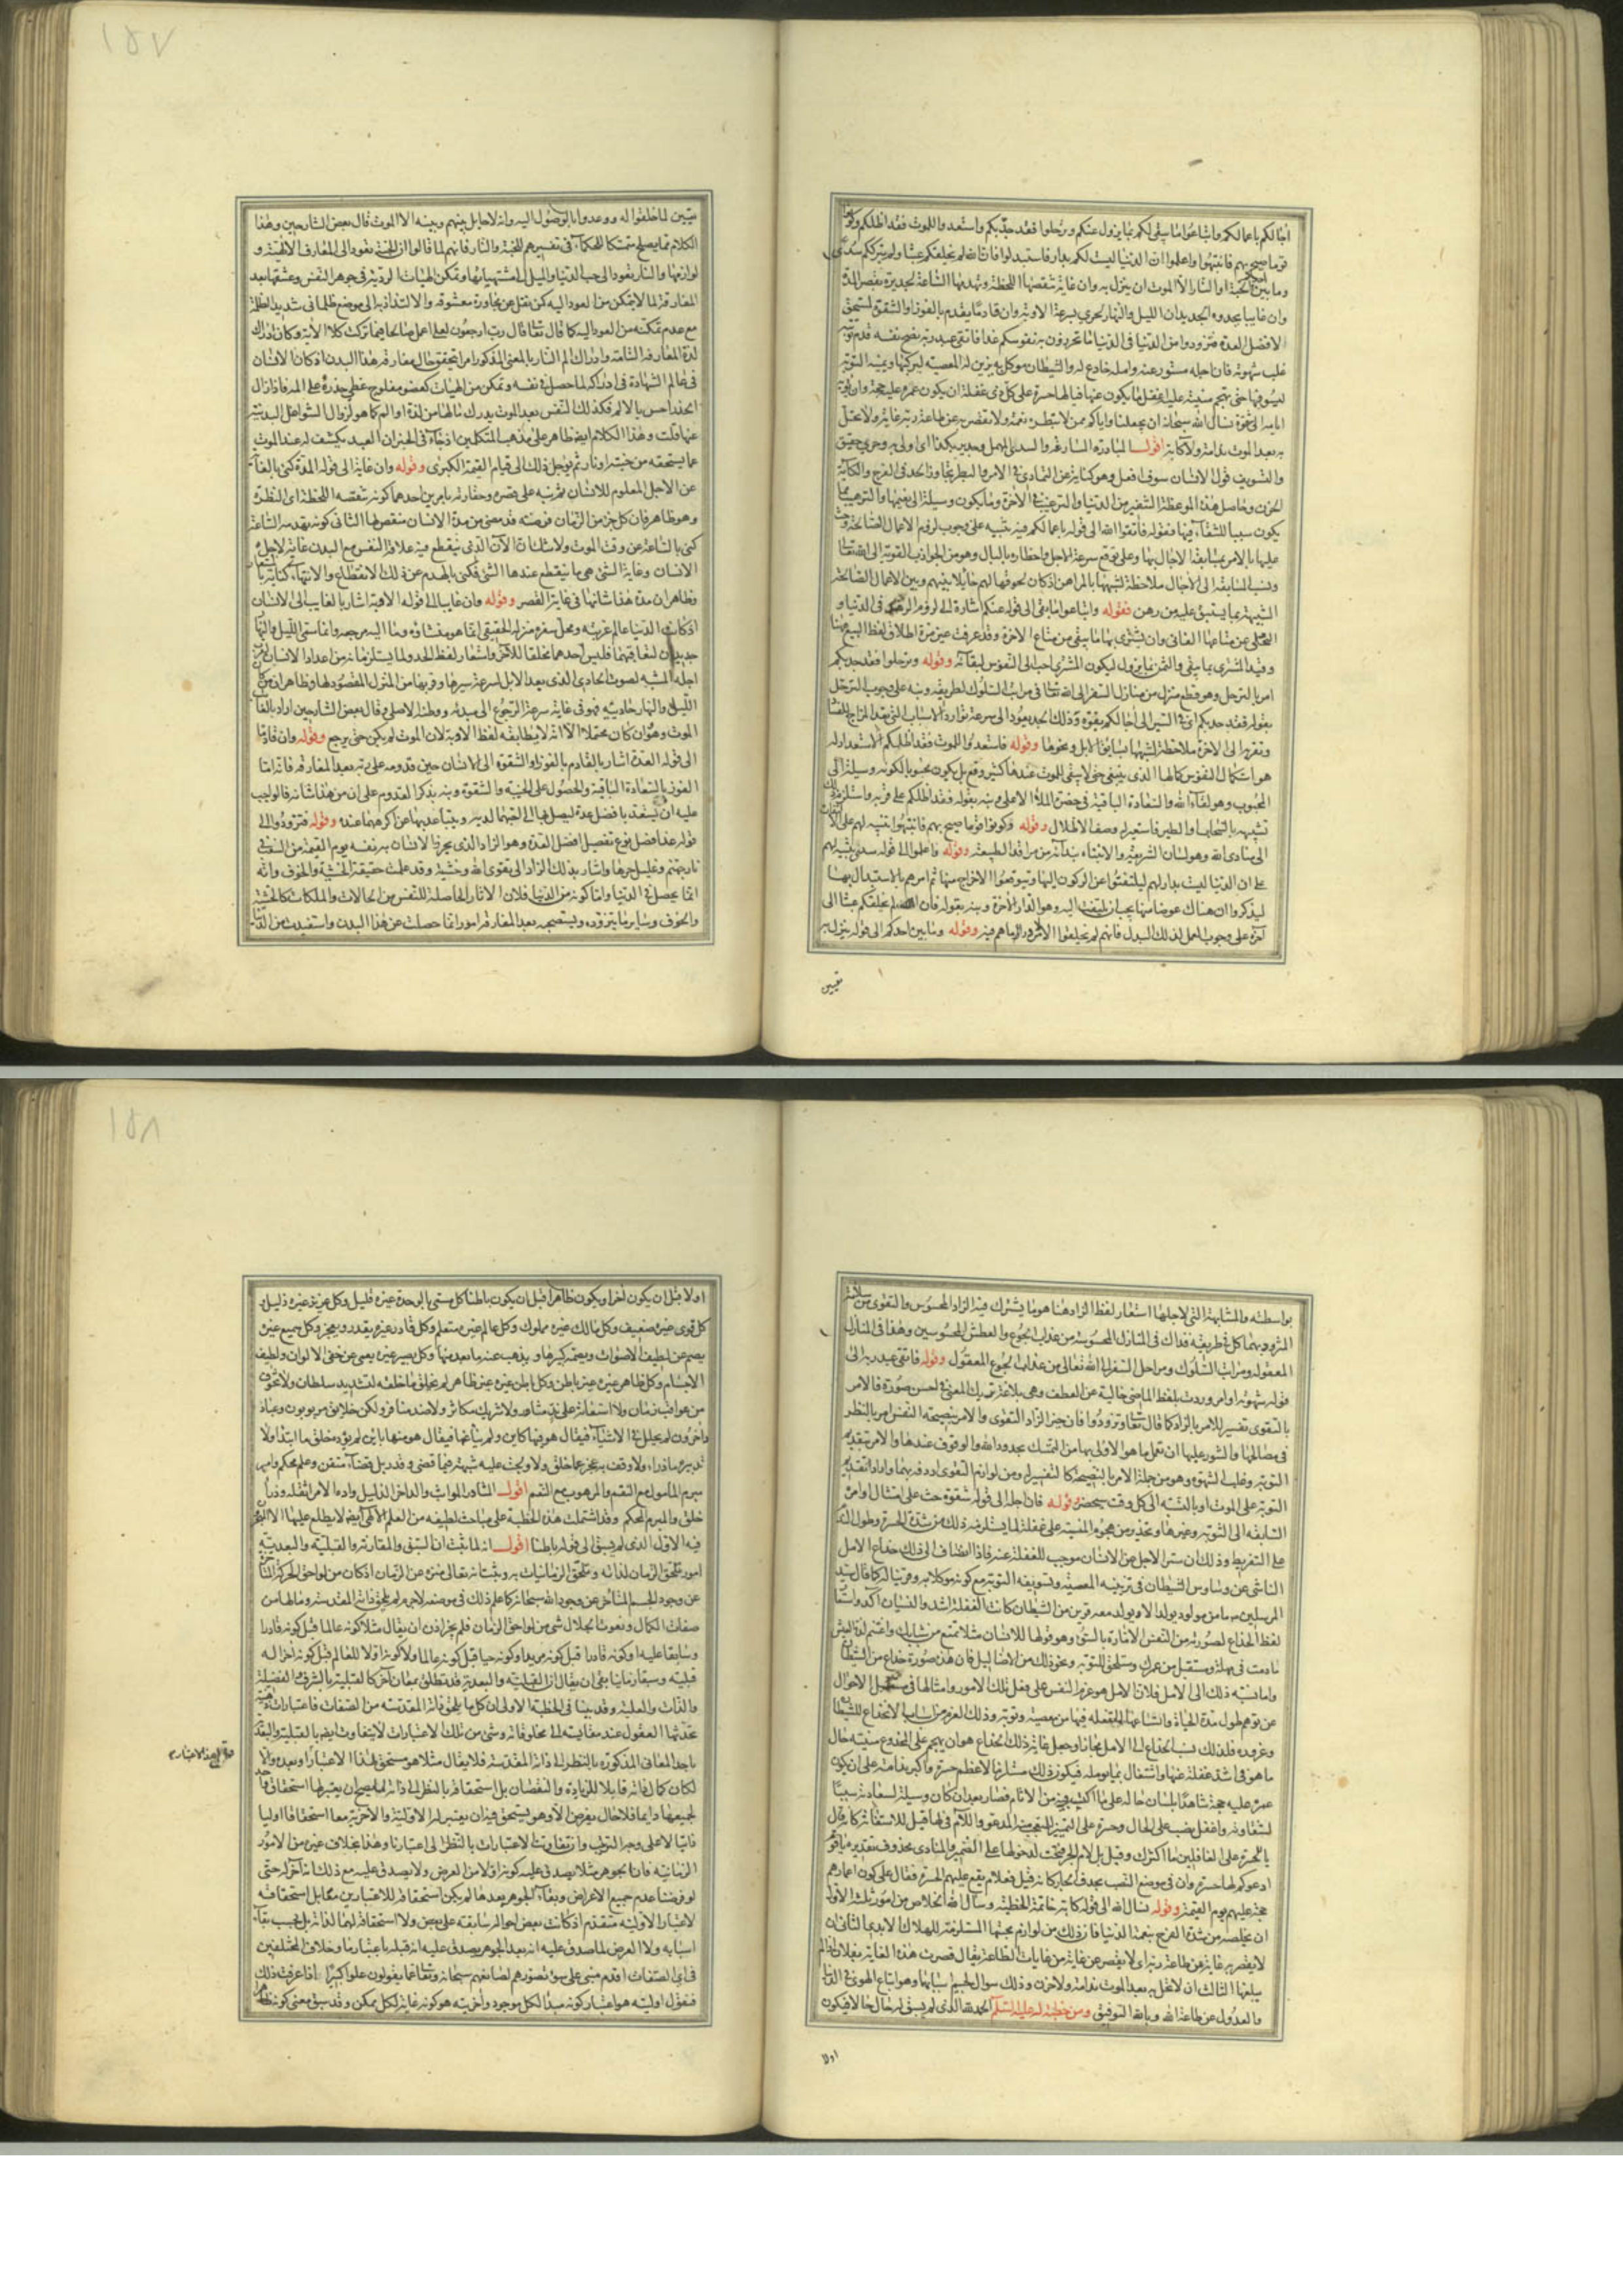 آجالكم باعمالكم وابتاعوا ما يبقى لكم بما يزول عنكم وترحلوا فقد جدبكم واستعدوا للموت فقد اظلكم وكونوا
قوما صيح بهم فانتبهوا واعلموا ان الدنيا ليست لكم بدار فاستبدلوا فان الله لم يخلقكم عبثا ولم يترككم سدى
وما بين احدكم وبين الجنة او النار الا الموت ان ينزل به وان غاية تنقصها اللحظة وتهدمها الساعة لجديرة بقصر المدة
وان غايبا يحدوه الجديدان الليل والنهار لحري بسرعة الاوبة وان قادما يقدم بالفوز او الشقوة لمستحق
لافضل العدة فتزودوا من الدنيا في الدنيا ما تحرزون به نفوسكم غدا فاتقى عبد ربه نصح نفسه قدم توبته
غلب شهوته فان اجله مستور عنه وامله خادع له والشيطان موكل به يزين له المعصية ليركبها ويمنيه التوبة
ليسوفها حتى تهجم منيته عليه اغفل ما يكون عنها فيا لها حسرة على كل ذي غفلة ان يكون عمره عليه حجة وان تؤديه
ايامه الى شقوة نسال الله سبحانه ان يجعلنا واياكم ممن لا تبطره نعمة ولا تقصر به عن طاعة ربه غاية ولا تحل
به بعد الموت ندامة ولا كآبة اقول المبادرة المسارعة والسدى المهمل وجدير بكذا اي اولى به وحري حقيق
والتسويف قول الانسان سوف افعل وهو كناية عن التمادي في الامر والبطر تجاوز الحد في الفرح والكآبة
الحزن وحاصل هذه الموعظة التنفير من الدنيا والترغيب في الآخرة وما يكون وسيلة الى نعيمها والترهيب مما
يكون سببا للشقاء فيها فقوله فاتقوا الله الى قوله باعمالكم فيه تنبيه على وجوب لزوم الاعمال الصالحة وحث
عليها بالامر بمسابقة الآجال بها وعلى توقع سرعة الاجل واخطاره بالبال وهو من الجواذب القوية الى الله تعالى
ونسب المسابقة الى الآجال ملاحظة لشبهها بالمراهن اذ كان لحوقها لهم حايلا بينهم وبين الاعمال الصالحة
الشبيهة بما يستبق عليه من رهن فقوله وابتاعوا ما يبقى الى قوله عنكم اشارة الى لزوم الزهد في الدنيا و
التخلي عن متاعها الفاني وان يشترى بها ما يبقى من متاع الآخرة وقد عرفت غير مرة اطلاق لفظ البيع هنا
وقيد المشترى بما يبقى والثمن بما يزول ليكون المشترى احب الى النفوس لبقائه وقوله وترحلوا فقد جدبكم
امر بالترحل وهو قطع منزل من منازل السفر الى الله تعالى في مراتب السلوك لطريقه ونبه على وجوب الترحل
بقوله فقد جدبكم اي في السير الى آجالكم بقوة وذلك الجد يعود الى سرعة توارد الاسباب التي تعد المزاج للفساد
وتقربه الى الآخرة ملاحظة لشبهها بسايق الابل ونحوها وقوله فاستعدوا للموت فقد اظلكم الاستعداد له
هو استكمال النفوس كمالها الذي ينبغي حتى لا يبقى للموت عندها كثير وقع بل يكون محبوبا لكونه وسيلة الى
المحبوب وهو لقاء الله والسعادة الباقية في حضرة الملأ الاعلى ونبه بقوله فقد اظلكم على قربه واستلزم ذلك
تشبيهه بالسحاب والطير فاستعير له وصف الاظلال وقوله وكونوا قوما صيح بهم فانتبهوا تنبيه لهم على الالتفات
الى منادى الله وهو لسان الشريعة والانتباه بندائه من مراقد الطبيعة وقوله واعلموا الى قوله سدى تنبيه لهم
على ان الدنيا ليست بدار لهم ليلتفتوا عن الركون اليها ويتوقعوا الاخراج منها ثم امرهم بالاستبدال بها
ليذكروا ان هناك عوضا منها يجب ان يلتفت اليه وهو الدار الآخرة ونبه بقوله فان الله لم يخلقكم عبثا الى
آخره على وجوب العمل لذلك البدل فانهم لم يخلقوا الا لامر وراء ما هم فيه وقوله وما بين احدكم الى قوله ينزل به
تعيين
تعيين لما خلقوا له ووعدوا بالوصول اليه وانه لا حايل بينهم وبينه الا الموت قال بعض الشارحين وهذا
الكلام مما يصلح متمسكا للحكماء في تفسيرهم للجنة والنار فانهم لما قالوا ان الجنة تعود الى المعارف الالهية و
لوازمها والنار تعود الى حب الدنيا والميل الى مشتهياتها وتمكن الهيئات الردية في جوهر النفس وعشقها بعد
المفارقة لما لا يتمكن من العود اليه كمن نقل عن مجاورة معشوقه والالتذاذ به الى موضع ظلماني شديد الظلمة
مع عدم تمكنه من العود اليه كما قال تعالى قال رب ارجعون لعلي اعمل صالحا فيما تركت كلا الآية وكان ادراك
لذة المعارف التامة وادراك الم النار بالمعنى المذكور امرا يتحقق حال مفارقة هذا البدن اذ كان الانسان
في عالم الشهادة في ادراكه لما حصل في نفسه وتمكن من الهيئات كعضو مفلوج غطى خدره على المه فاذا زال
الخدر احس بالالم فكذلك النفس بعد الموت يدرك ما لها من لذة او الم كما هو لزوال الشواغل البدنية
عنها قلت وهذا الكلام ايضا ظاهر على مذهب المتكلمين اذ جاء في الخبر ان العبد يكشف له عند الموت
عما يستحقه من جنة او نار ثم يؤجل ذلك الى قيام القيمة الكبرى وقوله وان غاية الى قوله المدة كنى بالغاية
عن الاجل المعلوم للانسان ثم نبه على قصره وحقارته بامرين احدهما كونه تنقصه اللحظة اي النظرة
وهو ظاهر فان كل جزء من الزمان فرضته قد مضى من مدة الانسان منقص لها الثاني كونه تهدمه الساعة
كنى بالساعة عن وقت الموت ولا شك ان الآن الذي ينقطع فيه علاقة النفس مع البدن غاية لاجل
الانسان وغاية الشيء هي ما ينقطع عندها الشيء فكنى بالهدم عن ذلك الانقطاع والانتهاء كناية
وظاهر ان مدة هذا شانها في غاية القصر وقوله وان غايبا الى قوله الاوبة اشار بالغايب الى الانسان
اذ كانت الدنيا عالم غربته ومحل سفره ومنزله الحقيقي انما هو منشاؤه وما اليه مرجعه وانما سمى الليل والنهار
جديدان لتعاقبهما فليس احدهما مخلقا للآخر واستعار لفظ الحدو لما يستلزمانه من اعداد الانسان لقرب
اجله المشبه لصوت الحادي الذي يعد الابل لسرعة سيرها وقربها من المنزل المقصود لها وظاهر ان من كان
الليل والنهار حادييه فهو في غاية سرعة الرجوع الى مبدئه ووطنه الاصلي وقال بعض الشارحين اراد بالغايب
الموت وهو وان كان محتملا الا انه لا يطابقه لفظ الاوبة لان الموت لم يكن حتى يرجع وقوله وان قادما
الى قوله العدة اشار بالقادم بالفوز او الشقوة الى الانسان حين قدومه على ربه بعد المفارقة فانه اما
الفوز بالسعادة الباقية والحصول على الخيبة والشقوة ونبه بذكر القدوم على ان من هذا شانه فالواجب
عليه ان يستعد بافضل عدة ليصل بها الى احبهما لديه ويتباعد بها عن اكرههما عنده وقوله فتزودوا الى
قوله غدا فصل نوع تفصيل افضل العدة وهو الزاد الذي يحرز الانسان به نفسه يوم القيمة من السقوط في
نار جهنم وغليل حرها واشار بذلك الزاد الى تقوى الله وخشيته وقد علمت حقيقة الخشية والخوف وانه
انما يحصل في الدنيا واما كونه من الدنيا فلان الآثار الحاصلة للنفس من الحالات والملكات كالخشية
والخوف وساير ما يتزوده ويستصحبه بعد المفارقة امور انما حصلت عن هذا البدن واستفيدت من الدنيا
بواسطته والمشابهة التي لاجلها استعار لفظ الزاد هنا هو ما يشترك فيه الزاد المحسوس والتقوى من سلامة
المتزود بهما كل في طريقه فذاك في المنازل المحسوسة من عذاب الجوع والعطش المحسوسين وهذا في المنازل
المعقولة ومراتب السلوك ومراحل السفر الى الله تعالى من عذاب الجوع المعقول وقوله فاتقى عبد ربه الى
قوله شهوته اوامر وردت بلفظ الماضي خالية عن العطف وهي بلاغة تريك المعنى في احسن صورة فالامر
بالتقوى تفسير للامر بالزاد كما قال تعالى وتزودوا فان خير الزاد التقوى والامر بنصيحة النفس امر بالنظر
في مصالحها والشور عليها ان تعمل ما هو الاولى بها من التمسك بحدود الله والوقوف عندها والامر بتقديم
التوبة وغلب الشهوة وهو من جملة الامر بالنصيحة كالتفسير له ومن لوازم التقوى اردفه بهما واراد تقديم
التوبة على الموت او بالنسبة الى كل وقت سيحضر وقوله فان اجله الى قوله شقوة حث على امتثال اوامره
السابقة الى التوبة وغيرها وتحذير من هجوم المنية على غفلة لما يستلزمه ذلك من شدة الحسرة وطول الندم
على التفريط وذلك ان ستر الاجل عن الانسان موجب للغفلة عنه فاذا انضاف الى ذلك خداع الامل
الناشي عن وساوس الشيطان في تزيينه المعصية وتسويفه التوبة مع كونه موكلا به وقرينا له كما قال سيد
المرسلين ص ما من مولود يولد الا ويولد معه قرين من الشيطان كانت الغفلة اشد والنسيان آكد واستعار
لفظ الخداع لصورته من النفس الامارة بالسوء وهو قولها للانسان مثلا تمتع من شبابك واغتنم لذة العيش
ما دمت في مهلة وستقبل من عمرك وستلحق التوبة ونحو ذلك من الاضاليل فان هذه صورة خداع من الشيطان
واما نسبة ذلك الى الامل فلان الامل هو عزم النفس على فعل ذلك الامور وامثالها في مستقبل الاحوال
عن توهم طول مدة الحياة واتساعها لما تفعله فيها من معصية وتوبة وذلك العزم من اسباب الانخداع للشيطان
وغروره فلذلك نسب الخداع الى الامل مجازا وجعل غاية ذلك الخداع هو ان يهجم على المخدوع منيته حال
ما هو في اشد غفلة عنها واشتغال بما يؤمله فيكون ذلك مستلزما لاعظم حسرة واكبر ندامة على ان يكون
عمره عليه حجة شاهدا بلسان حاله على ما اكتسب فيه من الآثام فصار بعد ان كان وسيلة لسعادته سببا
لشقاوته واغفل نصب على الحال وحسرة على التمييز المتعجب منه المدعو واللام في لها قيل للاستغاثة كانه قال
يا للحسرة على الغافلين ما اكثرك وقيل بل لام الجر فتحت لدخولها على الضمير والمنادى محذوف بتقدير يا قوم
ادعوكم لها حسرة وان في موضع النصب بحذف الجار كانه قيل فعلام يقع عليهم الحسرة فقال على كون اعمارهم
حجة عليهم يوم القيمة وقوله نسال الله الى قوله كآبة خاتمة الخطبة وسال الله الخلاص من امور ثلثة الاول
ان يخلصه من شدة الفرح بنعمة الدنيا فان ذلك من لوازم محبتها المستلزمة للهلاك الابدي الثاني ان
لا يقصر به غاية من طاعة ربه اي لا يقصر عن غاية من غايات الطاعة يقال قصرت هذه الغاية بفلان اذا لم
يبلغها الثالث ان لا تحل به بعد الموت ندامة ولا حزن وذلك سوال لحسم اسبابها وهو اتباع الهوى في الدنيا
والعدول عن طاعة الله وبالله التوفيق ومن خطبة له عليه السلام الحمد لله الذي لم يسبق له حال حالا فيكون
اولا
اولا قبل ان يكون آخرا ويكون ظاهرا قبل ان يكون باطنا كل مسمى بالوحدة غيره قليل وكل عزيز غيره ذليل و
كل قوي غيره ضعيف وكل مالك غيره مملوك وكل عالم غيره متعلم وكل قادر غيره يقدر ويعجز وكل سميع غيره
يصم عن لطيف الاصوات ويصمه كبيرها ويذهب عنه ما بعد منها وكل بصير غيره يعمى عن خفي الالوان ولطيف
الاجسام وكل ظاهر غيره غير باطن وكل باطن غيره غير ظاهر لم يخلق ما خلقه لتشديد سلطان ولا تخوف
من عواقب زمان ولا استعانة على ند مثاور ولا شريك مكاثر ولا ضد منافر ولكن خلايق مربوبون وعباد
داخرون لم يحلل في الاشياء فيقال هو فيها كاين ولم ينأ عنها فيقال هو منها باين لم يؤده خلق ما ابتدا ولا
تدبير ما ذرا ولا وقف به عجز عما خلق ولا ولجت عليه شبهة فيما قضى وقدر بل قضاء متقن وعلم محكم وامر
مبرم المأمول مع النقم والمرهوب مع النعم اقول المثاور المواثب والداخر الذليل وآده الامر اثقله وذرا
خلق والمبرم المحكم وقد اشتملت هذه الخطبة على مباحث لطيفة من العلم الالهي ايضا لا يطلع عليها الا المتبحر
فيه الاول الذي لم يسبق الى قوله باطنا اقول انه لما ثبت ان السبق والمقارنة والقبلية والبعدية
امور تلحق الزمان لذاته وتلحق الزمانيات به وثبت انه تعالى منزه عن الزمان اذ كان من لواحق الحركة المتأخرة
عن وجود الجسم المتأخر عن وجود الله سبحانه كما علم ذلك في موضعه لا جرم لم يلحق ذاته المقدسة وما لها من
صفات الكمال ونعوت الجلال شيء من لواحق الزمان فلم يجز اذن ان يقال مثلا كونه عالما قبل كونه قادرا
وسابقا عليه او كونه قادرا قبل كونه مريدا وكونه حيا قبل كونه عالما ولا كونه اولا للعالم قبل كونه آخرا له
قبلية وسبقا زمانيا بقي ان يقال ان القبلية والبعدية قد تطلق بمعان اخر كالقبلية بالشرف والفضيلة
والذات والعلية وقد بينا في الخطبة الاولى ان كل ما يلحق ذاته المقدسة من الصفات فاعتبارات ذهنية
تحدثها العقول عند مقايسته الى مخلوقاته وشيء من تلك الاعتبارات لا يتفاوت ايضا بالقبلية والبعدية
باحد المعاني المذكورة بالنظر الى ذاته المقدسة فلا يقال مثلا هو مستحق لهذا الاعتبار او بعده والا
لكان كمال ذاته قابلا للزيادة والنقصان بل استحقاقه بالنظر الى ذاته لما يصح ان يعتبر لها استحقاق واحد
لجميعها دايما فلا حال يفرض الا وهو يستحق فيه ان يعتبر له الاولية والآخرية معا استحقاقا اوليا
ذاتيا لا على وجه الترتيب وان تفاوتت الاعتبارات بالنظر الى اعتبارنا وهذا بخلاف غيره من الامور
الزمانية فان الجوهر مثلا يصدق عليه كونه اولا من العرض ولا يصدق عليه مع ذلك انه آخر له حتى
لو فرضنا عدم جميع الاعراض وبقاء الجوهر بعدها لم يكن استحقاقه للاعتبارين معا بل استحقاقه
لاعتبار الاولية متقدم اذ كانت بعض احواله سابقة على بعض ولا استحقاقه لهما لذاته بل بحسب بقاء
اسبابه ولا العرض لما صدق عليه انه بعد الجوهر يصدق عليه انه قبله باعتبار ما وخلاف المختلفين
في اي الصفات اقدم مبني على سوء تصورهم لصانعهم سبحانه وتعالى عما يقولون علوا كبيرا اذا عرفت ذلك
فنقول اوليته هو اعتبار كونه مبدأ لكل موجود وآخريته هو كونه غاية لكل ممكن وقد سبق معنى كونه ظاهرا